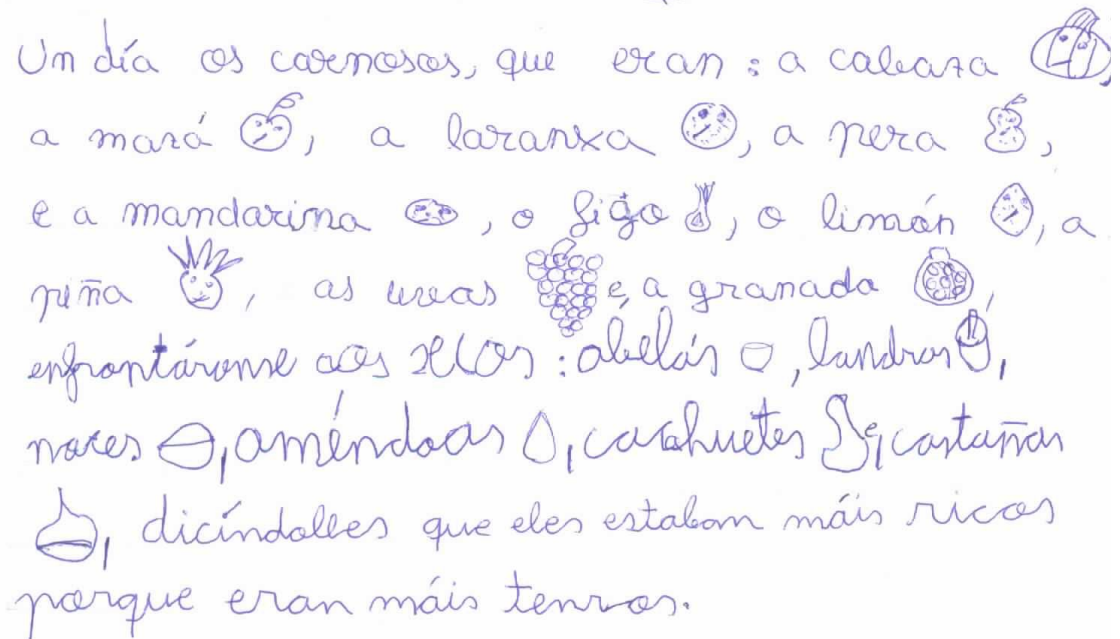 Un día os carnosos, que eran : a cabaza ,
a mazá , a laranxa , a pera ,
e a mandarina , o figo , o limón , a
piña , as uvas e, a granada ,
enfrontáronse aos secos : abelás , landras ,
noces , améndoas , cacahuetes e, castañas
, dicíndolles que eles estaban máis ricos
porque eran máis tenros.